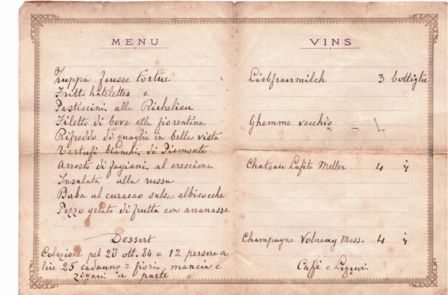 MENU
Zuppa fausse tortue
Fritto hatelettes e
Pasticcini alla Richelieu
Filetto di bove alla fiorentina
Rifreddo di quaglie in bella vista
Tartufi bianchi di Piemonte
Arrosto di fagiani al crescione
Insalata alla russa
Baba al curacao salsa albicocche
Pezzo gelato di frutta con ananasse
Dessert
Colazione pel 20 ott. 84 = 12 persone a
lire 25 caduno = fiori, mancia e
zigari a parte
VINS
Liebfraumilch 3 bottiglie
Ghemme vecchio
Chateau Lafite Meller 4
Champagne Volnay Moss. 4
Caffè e Liquori